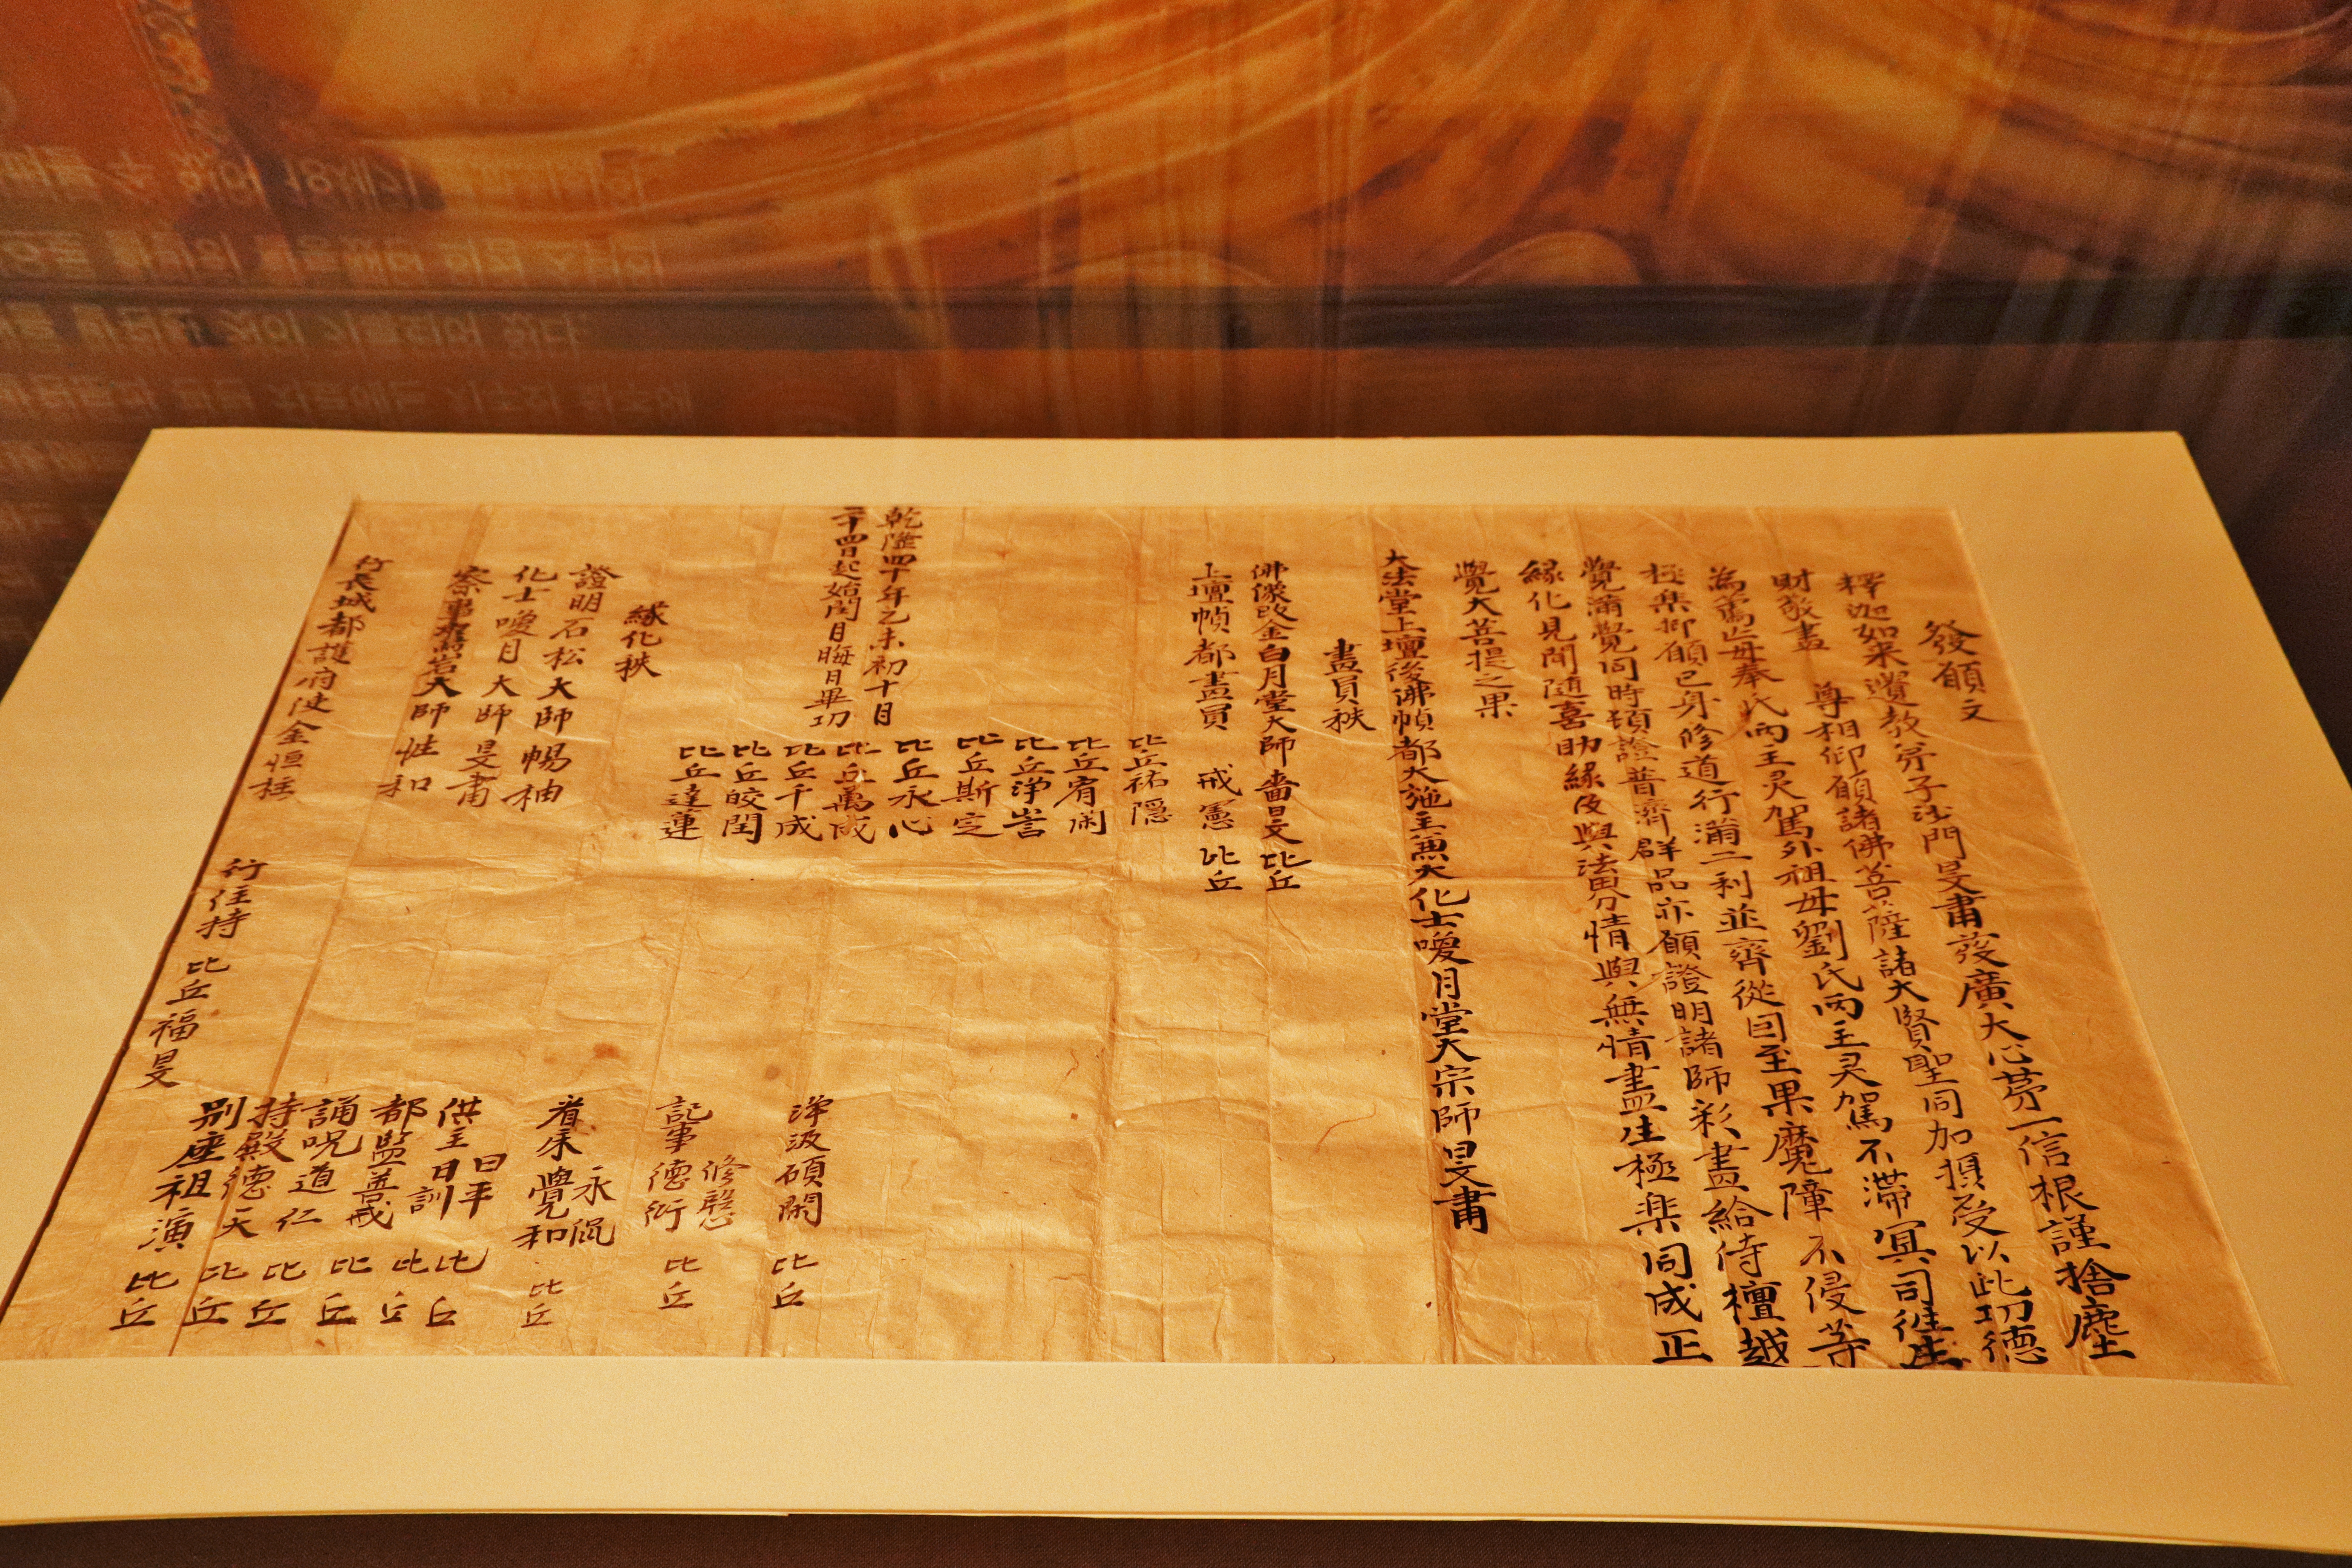 發願文
釋迦如來遺教弟子沙門旻肅發廣大心苐一信根謹捨塵
財敬畫 尊相仰願諸佛菩薩諸大賢聖同加攝受以此功德
為 父母奉氏兩主灵駕外祖母劉氏兩主灵駕不滯冥司徃生
極楽抑願已身修道行滿二利並齊從因至果魔障不侵等
覺滿覺同時頓證普濟群品亦願證明諸師彩畫給侍檀越
緣化見聞随喜助緣及與法界情與無情盡生極楽同成正
覺大菩提之果
大法堂上壇後佛幀都大施主兼大化士喚月堂大宗師旻肅
畫員秩
佛像改金白月堂大師 比丘
上壇幀都畫員 戒憲 比丘
比丘祐隠
比丘宥閑
比丘淨訔
比丘斯定
比丘永心
比丘萬成
比丘千成
比丘皎閏
比丘達運
乾隆四十年乙未初十月
二十四日起始閏月晦日畢功
緣化秩
證明石松大師暢柚
化士喚月大師旻肅
大師性和
行長城都護府使金恒柱
行住持 比丘福旻
淨汲碩閑 比丘
記事 修慇 德衍 比丘
着柰 永侃 覺和 比丘
供主 日平 日訓 比丘
都監善戒 比丘
誦呪道仁 比丘
持殿德天 比丘
別座祖演 比丘